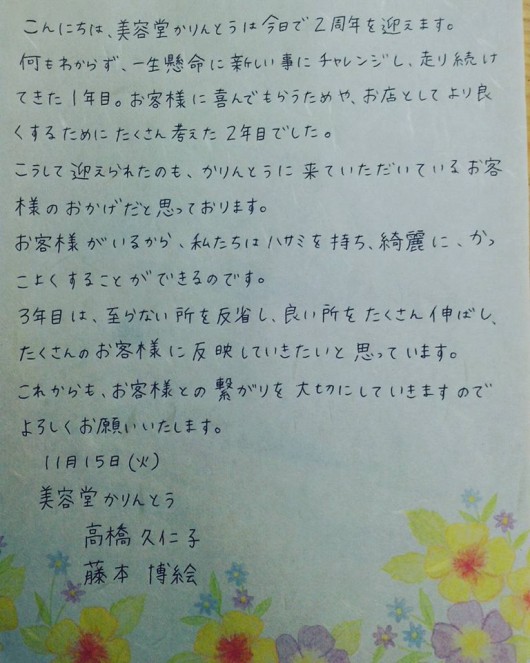 こんにちは、美容堂かりんとうは今日で2周年を迎えます。
何もわからず、一生懸命に新しい事にチャレンジし、走り続け
てきた1年目。お客様に喜んでもらうためや、お店としてより良
くするためにたくさん考えた2年目でした。
こうして迎えられたのも、かりんとうに来ていただいているお客
様のおかげだと思っております。
お客様がいるから、私たちはハサミを持ち、綺麗に、かっ
こよくすることができるのです。
3年目は、至らない所を反省し、良い所をたくさん伸ばし、
たくさんのお客様に反映していきたいと思っています。
これからも、お客様との繋がりを大切にしていきますので
よろしくお願いいたします。
11月15日(火)
美容堂かりんとう
高橋久仁子
藤本 博絵